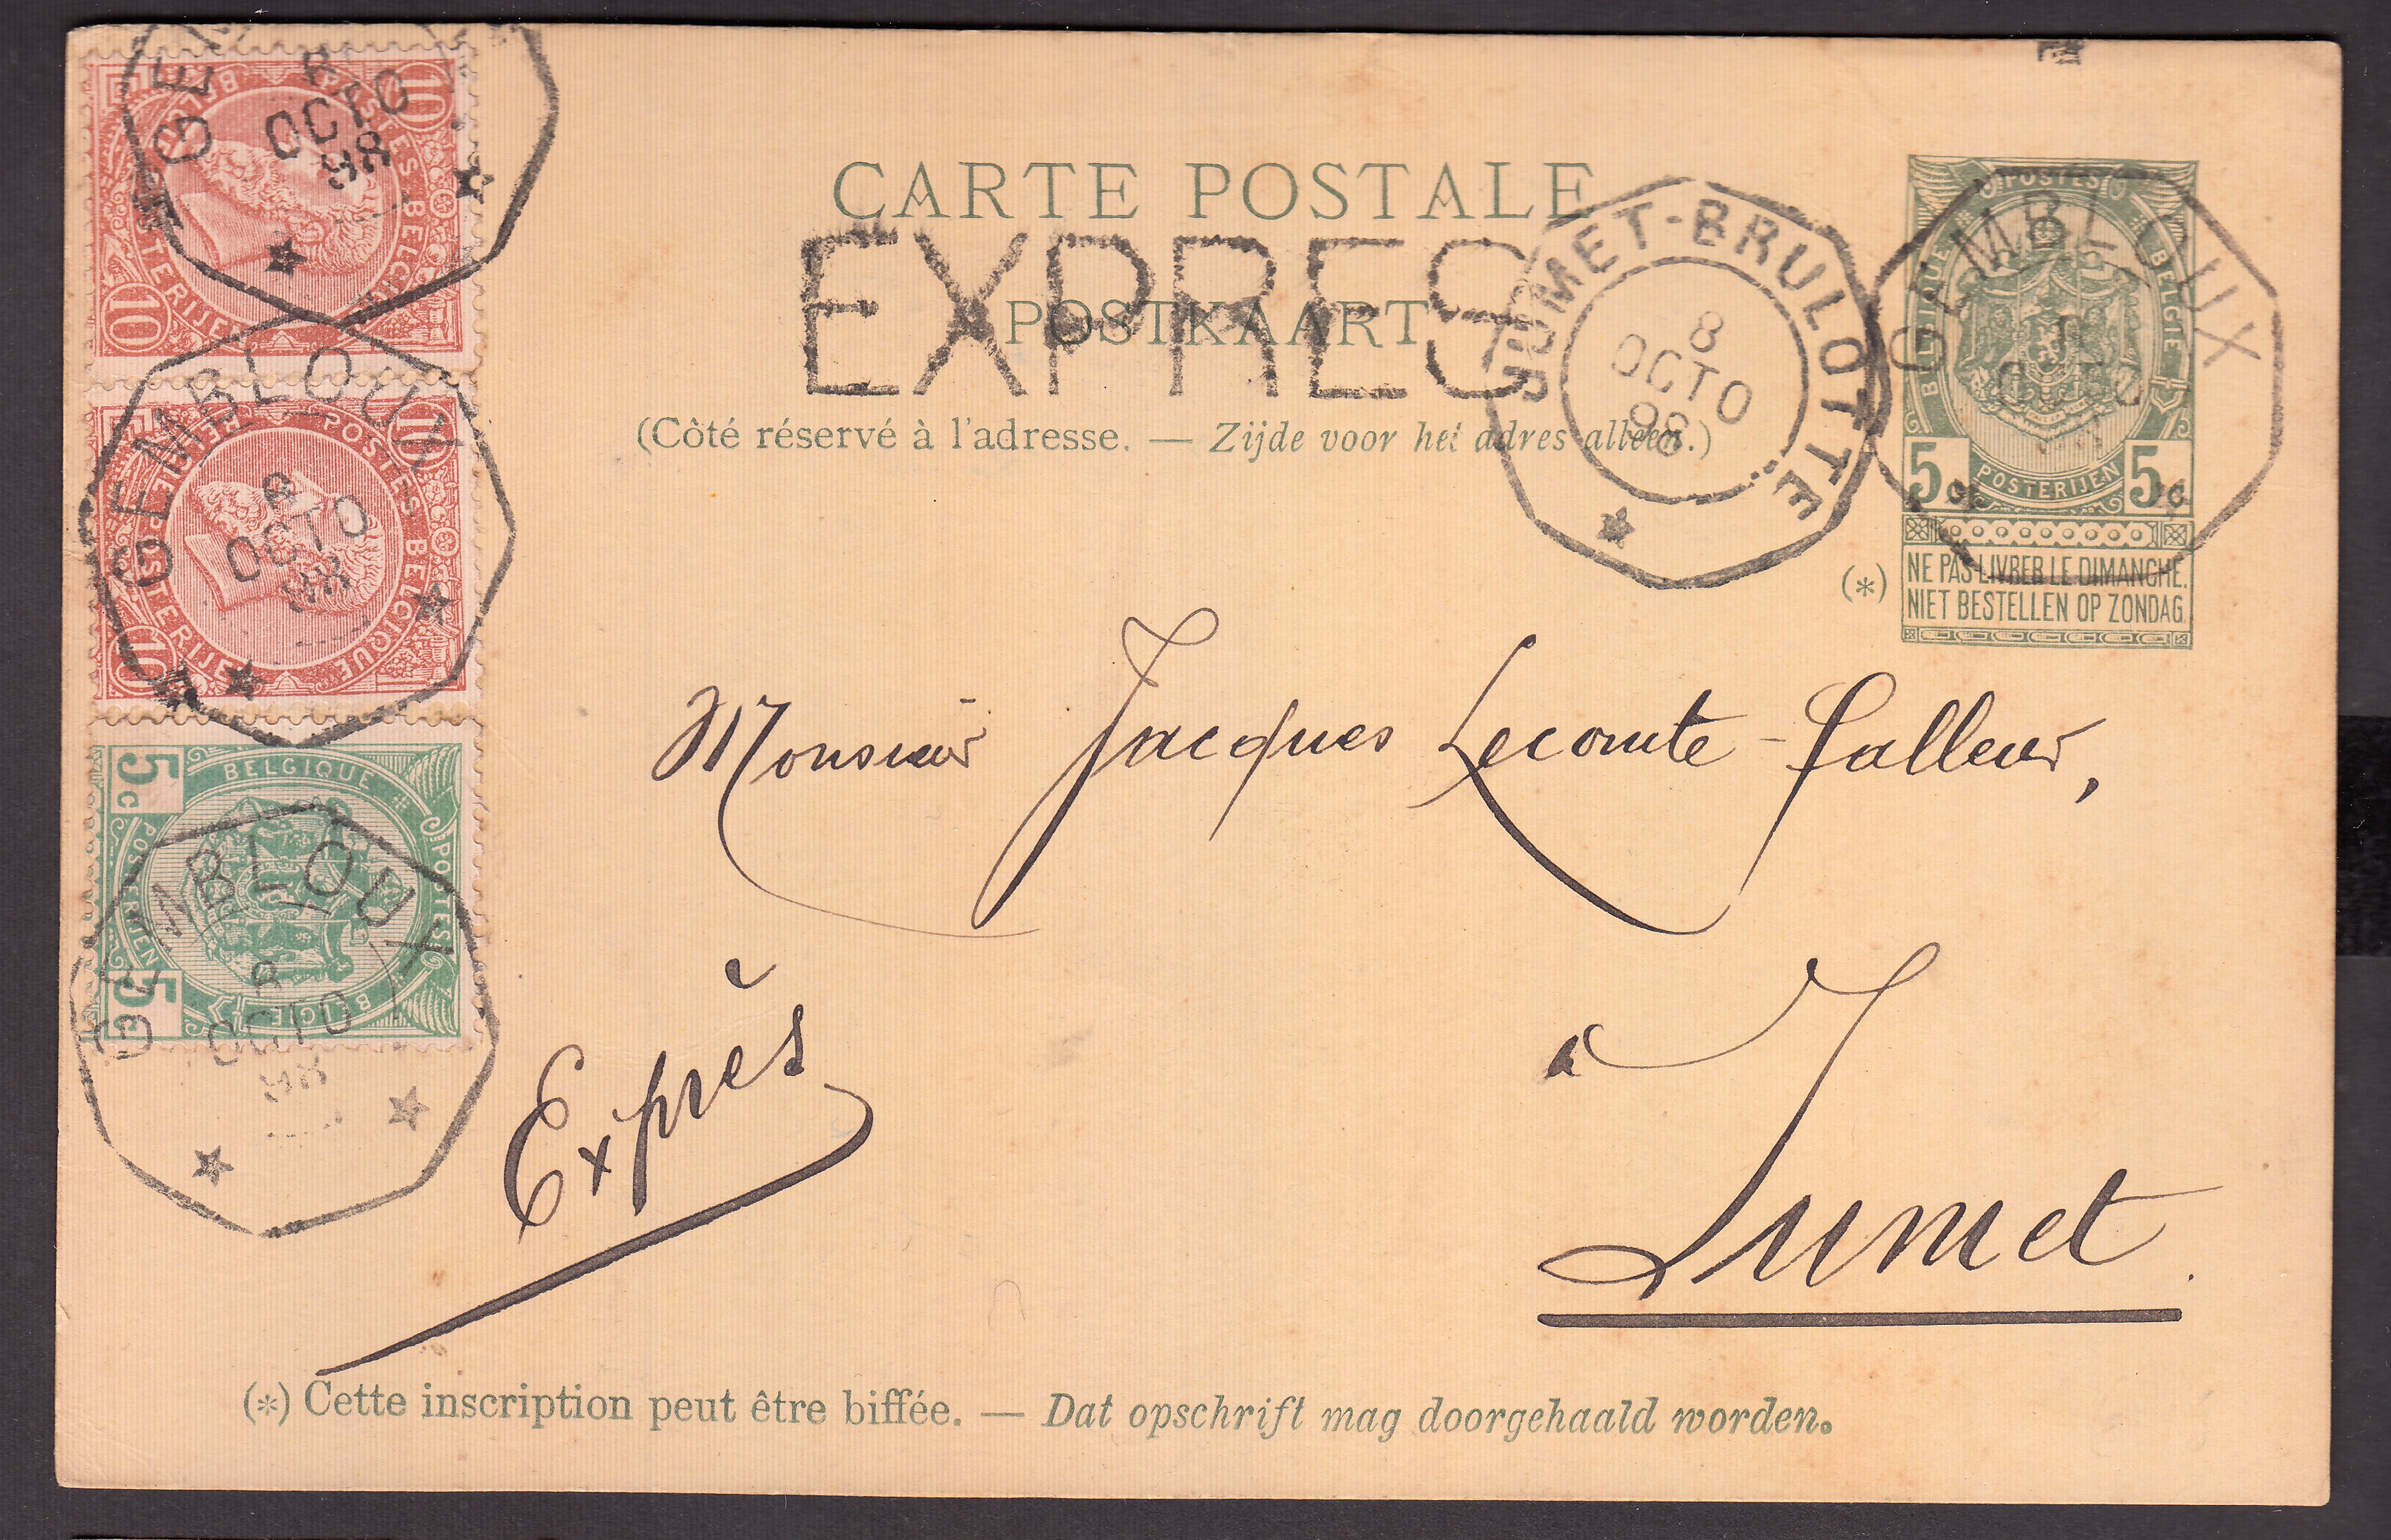 CARTE POSTALE
EXPRES
POSTKAART
(Côté réservé à l'adresse. — Zijde voor het adres alleen.)
JUMET-BRULOTTE
8
OCTO
98
GEMBLOUX
POSTES
BELGIQUE
BELGIË
POSTERIJEN
5c 5c
(*) NE PAS LIVRER LE DIMANCHE.
NIET BESTELLEN OP ZONDAG.
10 POSTES BELGIQUE
10 POSTERIJEN
8
OCTO
98
GEMBLOUX
10 POSTES BELGIQUE
10 POSTERIJEN
8
OCTO
98
5c BELGIQUE POSTES
5c POSTERIJEN BELGIË
GEMBLOUX
8
OCTO
98
Monsieur Jacques Lecomte-Falleur,
à
Jumet.
Exprès
(*) Cette inscription peut être biffée. — Dat opschrift mag doorgehaald worden.